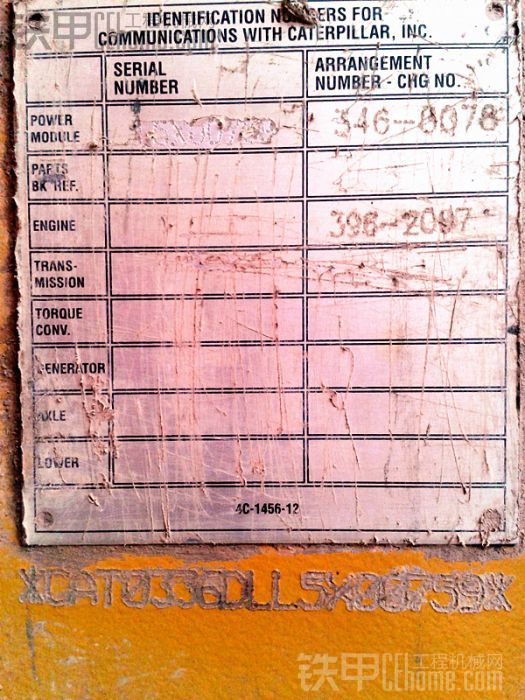 IDENTIFICATION NUMBERS FOR
COMMUNICATIONS WITH CATERPILLAR, INC.
SERIAL NUMBER
ARRANGEMENT NUMBER - CHG NO.
POWER MODULE 346-8078
PARTS BK REF.
ENGINE 396-2097
TRANS-MISSION
TORQUE CONV.
GENERATOR
AXLE
LOWER
4C-1456-12
铁甲 工程机械网
CEhome.com
铁甲 工程机械网
CEhome.com